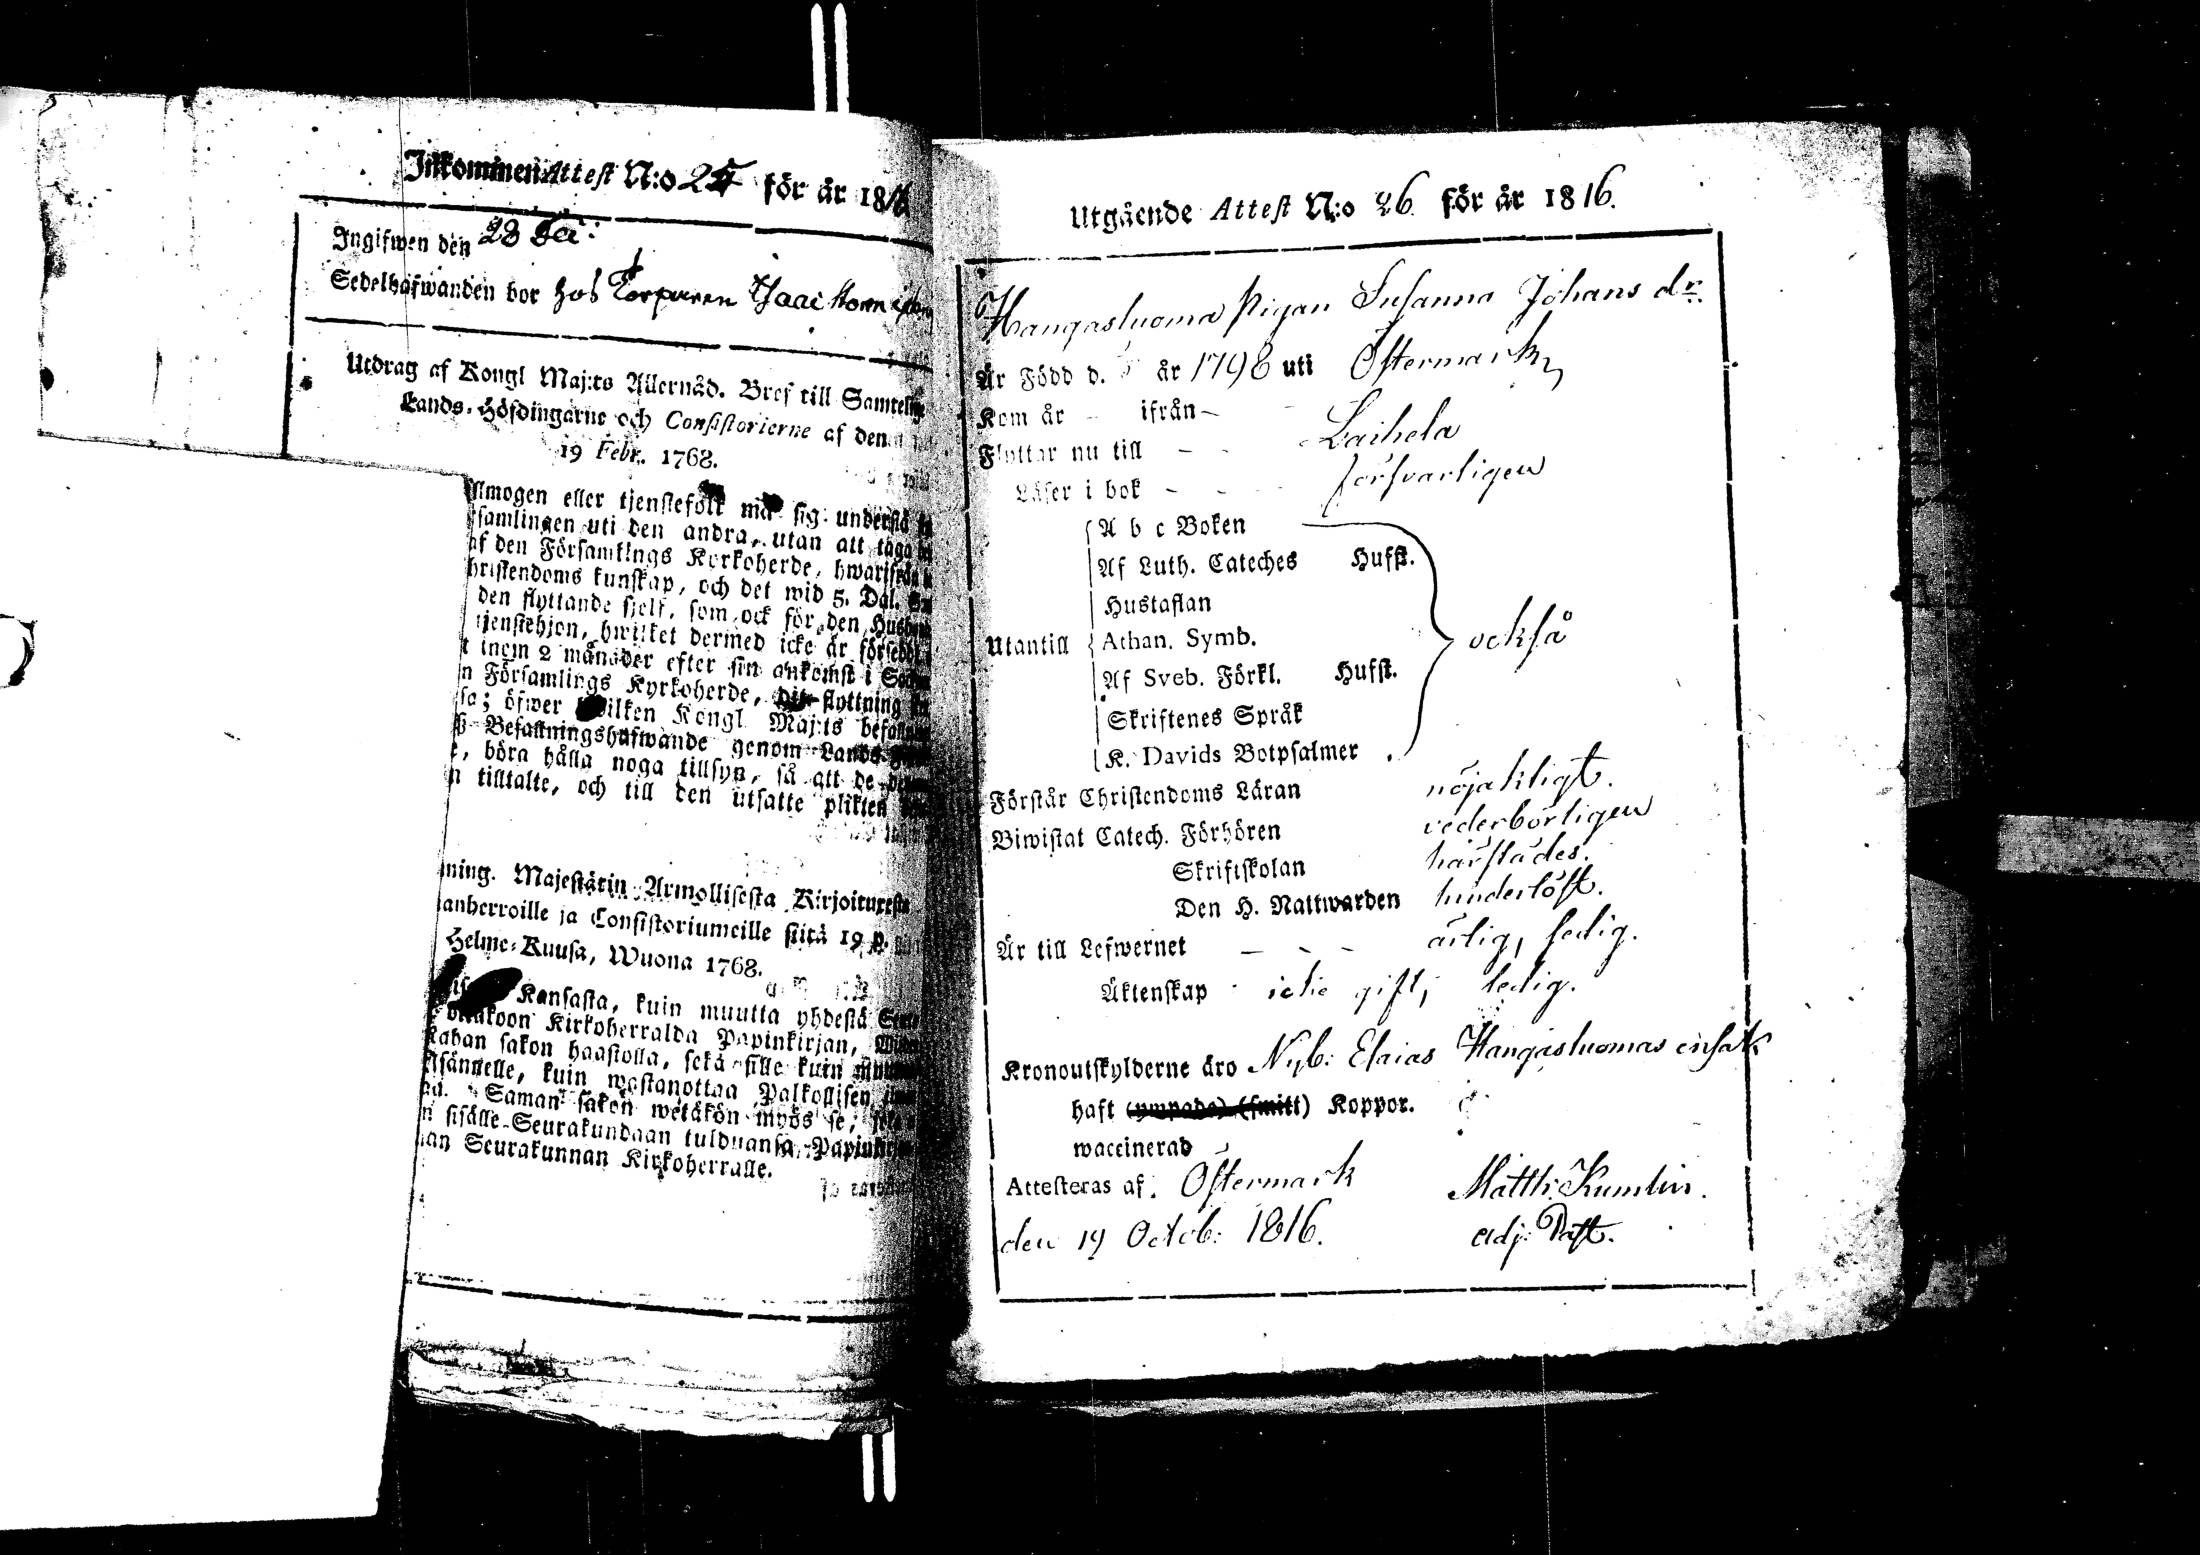 Inkommen Attest N:o 24 för år 1816
Ingifwen den 28
Sedelhafwanden bor hos Torparen Isaac
Utdrag af Kongl Maj:ts Allernåd. Bref till Samtelige
Lands-Höfdingarne och Consistorierne af den
19 Febr. 1768.
Almogen eller tjenstefolk må sig understå
samlingen uti den andra, utan att taga
af den Församlings Kyrkoherde, hwarifrån
hristendoms kunskap, och det wid 5. Dal.
den flyttande sjelf, som ock för den
tjenstehjon, hwilket dermed icke är försedd
inom 2 månader efter sin ankomst i
n Församlings Kyrkoherde, flyttning
sa; öfwer hwilken Kongl. Maj:ts
Befallningshafwande genom Lands
e, böra hålla noga tillsyn, så att de
n tilltalte, och till den utsatte plikten
ning. Majestätin Armollisesta Kirjoituxesta
anherroille ja Consistoriumeille siitä 19 p.
Helme-Kuusa, Wuona 1768.
Kansasta, kuin muutta yhdestä
ottakoon Kirkoherralda Papinkirjan,
sakon haastolla, sekä sille kuin
sännelle, kuin wastanottaa Palkollisen
Saman sakon wetäkön myös se,
n sisälle Seurakundaan tulduansa, Papinkirjan
an Seurakunnan Kirkoherralle.
Utgående Attest N:o 26. för år 1816.
Hangasluoma Pigan Susanna Johans dr.
Är Född d. år 1798 uti Östermark
Kom år - ifrån -
Flyttar nu till - - Laihela
Läser i bok - - - försvarligen
A b c Boken
Af Luth. Cateches Hufst.
Hustaflan
Utantill Athan. Symb. också
Af Sveb. Förkl. Hufst.
Skriftenes Språk
K. Davids Botpsalmer
Förstår Christendoms Läran nöjaktigt.
Biwistat Catech. Förhören vederbörligen
Skriftskolan härstädes.
Den H. Nattwarden hinderlöst.
Är till Lefwernet - - - ärlig, sedig.
Äktenskap icke gift, ledig.
Kronoutskylderne äro Nyb: Elaias Hangasluomas ensak
haft (ympade) (smitt) Koppor.
waccinerad
Attesteras af. Östermark Matth: Kumlin.
den 19 Octob: 1816. adj: Past.